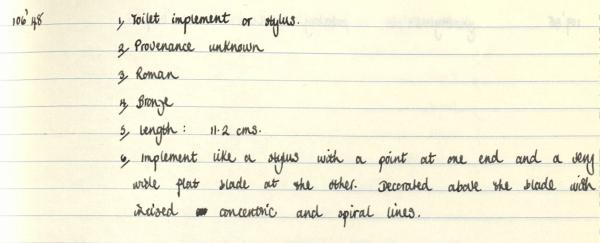 106'48 1, Toilet implement or stylus.
2, Provenance unknown
3, Roman
4, Bronze
5, Length: 11.2 cms.
6, Implement like a stylus with a point at one end and a very
wide flat blade at the other. Decorated above the blade with
incised concentric and spiral lines.